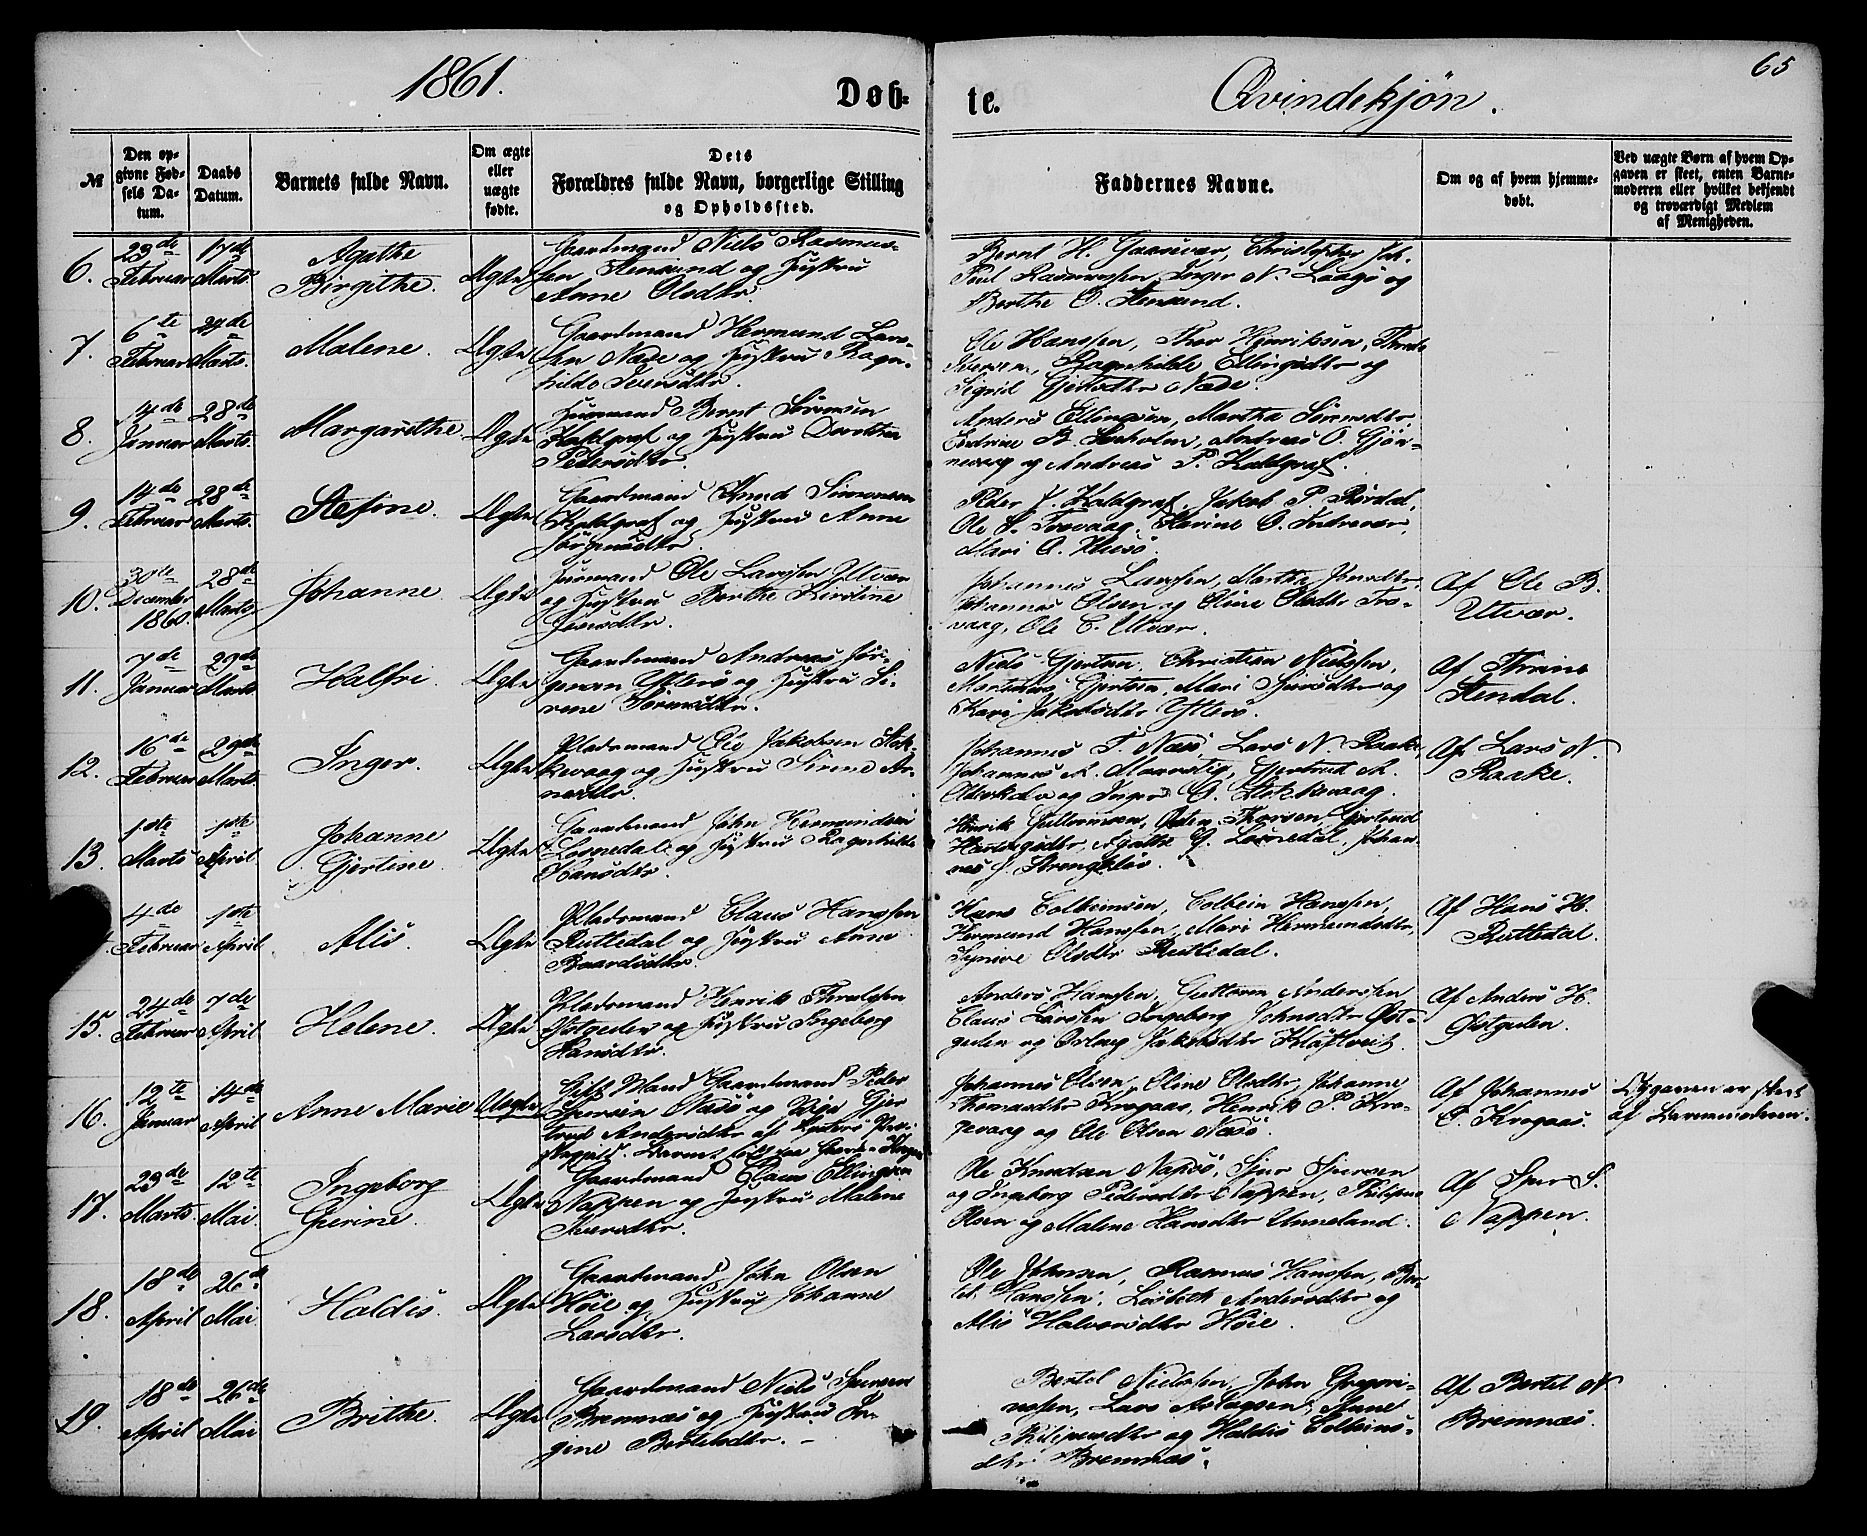 1861.
Døb-
te.
Qvindekjøn.
65
№
Den op-
givne Fød-
sels Da-
tum.
Daabs
Datum.
Barnets fulde Navn.
Om ægte
eller
uægte
fødte.
Dets
Forældres fulde Navn, borgerlige Stilling
og Opholdssted.
Faddernes Navne.
Om og af hvem hjemme-
døbt.
Ved uægte Børn af hvem Op-
gaven er skeet, enten Barne-
moderen eller hvilket bekjendt
og troværdigt Medlem
af Menigheden.
6.
23de
Februar
17de
Marts.
Agathe
Birgithe.
Ægte
Gaardmand Niels Rasmus-
sen Stensund og Hustru
Anne Olsdtr.
Bernt H. Gaasvær, Christopher Joh.
Poul Rasmussen, Inger N. Laagø og
Berthe O. Stensund.
7.
6te
Februar
24de
Marts.
Malene.
Ægte
Gaardmand Hermund Lars-
sen Næse og Hustru Ragn-
hilde Iversdtr.
Ole Hanssen, Thor Henrikssen,
Iversen, Ragnhilde Ellingsdtr og
Sigrid Gjertsdtr Næse.
8.
14de
Januar
28de
Marts.
Margarethe
Ægte
Huusmand Bernt Sørensen
Kalgraf og Hustru Dorothea
Pedersdtr.
Anders Ellingsen, Martha Simonsdtr,
B. Losholm, Andreas O. Gjøn-
nevaag og Andreas P. Kalgraf.
9.
14de
Februar
28de
Marts.
Stefine.
Ægte
Gaardmand Knud Simonsen
Kalgraf og Hustru Anne
Jørgensdtr.
Peder J. Kalgraf, Jakob P.
Ole S. Trovaag, Karine O. Indrevær,
Mari A. Huusø.
10.
30te
December
1860.
28de
Marts.
Johanne
Ægte
Huusmand Ole Larssen Utvær
og Hustru Berthe Kirstine
Jensdtr.
Johannes Larssen, Marthe Jensdtr,
Johannes Olsen og Oline Olsdtr Tro-
vaag, Ole C. Utvær.
Af Ole B.
Utvær.
11.
7de
Januar
29de
Marts
Halfri.
Ægte
Gaardmand Andreas Jør-
gensen Ytterø og Hustru Si-
rene Sørensdtr.
Niels Gjertsen, Christian Nielssen,
Martinus Gjertsen, Mari Sjursdtr og
Kari Jakobsdtr Ytterø.
Af Thrine
Stendal.
12.
16de
Februar
29de
Marts.
Inger.
Ægte
Pladsmand Ole Jakobsen Stok-
kevaag og Hustru Sinne Ar-
nesdtr.
Johannes T. Næsø, Lars N. Raake,
Johannes A. Maarstig, Gjertrud A.
og Inger O. Stokkevaag.
Af Lars N.
Raake.
13.
1ste
Marts
1ste
April
Johanne
Gjertine.
Ægte
Gaardmand John Hermundsen
Losnedal og Hustru Ragnhilde
Hansdtr.
Henrik Guttormsen, Østen Thorsen, Gjertrud
Hermundsdtr, Agathe G. Losnedal, Johan-
nes J.
4de
Februar
1ste
April
Alis.
Ægte
Pladsmand Claus Hanssen
Rutledal og Hustru Anne
Baardsdtr.
Hans Colbeinsen, Colbein Hanssen,
Hermund Hanssen, Mari Hermundsdtr,
Synive Olsdtr Rutledal.
Af Hans H.
Rutledal.
15.
24de
Februar
7de
April
Helene.
Ægte
Pladsmand Henrik
Østgulen og Hustru Ingeborg
Hansdtr.
Anders Hanssen, Guttorm Anderssen
Claus Larssen Ingeborg Johnsdtr Øst-
gulen og Jakobsdtr Kløftveit.
Af Anders H.
Østgulen.
16.
12te
Januar
14de
April
Anne Marie
Uægte
Gift Mand Gaardmand Peder
Iversen Næsø og Pige Gjer
trud Andersdtr af
Johannes Olsen, Oline Olsdtr, Johanne
Thomasdtr Krogaas, Henrik P. Kro-
gevaag og Ole Olsen Næsø.
Af Johannes
O. Krogaas.
Opgaven er skeet
af Barnemoderen.
17.
23de
Marts.
12te
Mai.
Ingeborg
Gurine.
Ægte
Gaardmand Claus Ellingsen
Nappen og Hustru Malene
Iversdtr.
Ole Knudsen Næsø, Sjur Sjursen
og Ingeborg Pedersdtr Nappen, Philippus
Olsen og Malene Hansdtr Unneland.
Af Sjur S.
Nappen.
18.
18de
April
26de
Mai.
Haldis.
Ægte
Gaardmand John Olsen
Høie og Hustru Johanne
Larsdtr.
Ole Johnsen, Rasmus Hanssen, Ber-
tel Hanssen, Lisbeth Andersdtr og
Alis Halvorsdtr Høie.
19.
18de
April
26de
Mai
Brithe.
Ægte
Gaardmand Niels Sjursen
Bremnæs og Hustru In-
gine Bertelsdtr. –
Bertel Nielssen, John Gregori-
ussen, Lars Aslagsen, Anne
Philipusdtr og Haldis Colbeins-
dtr Bremnæs.
Af Bertel N
Bremnæs.